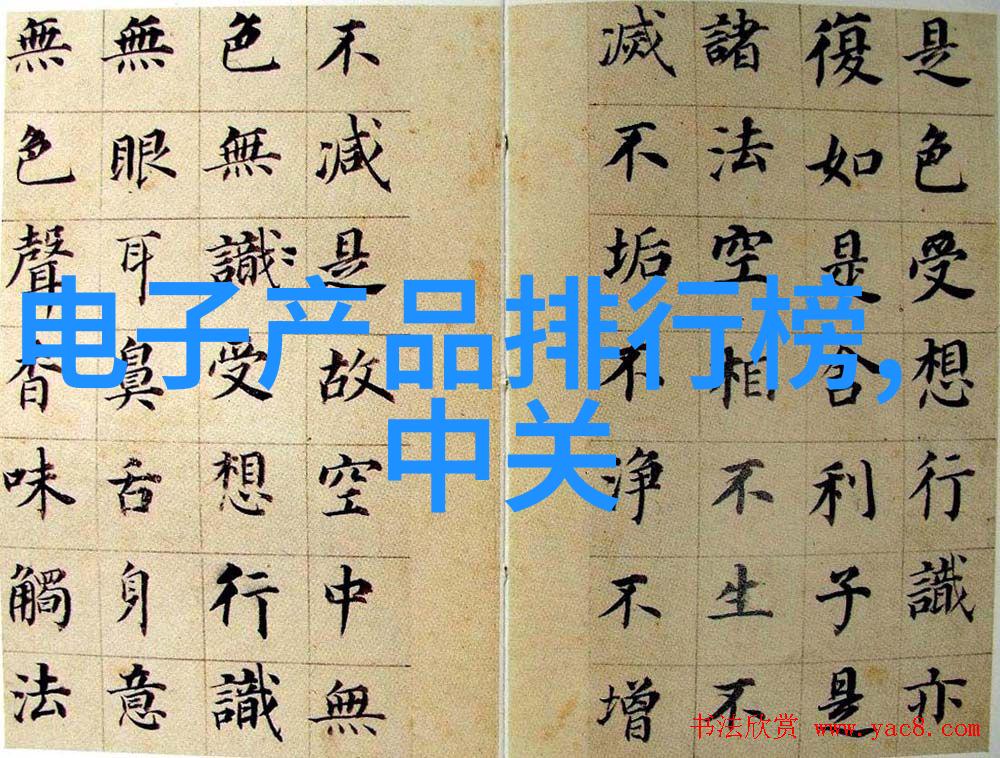 是色受想行識亦
復如是舍利子是
諸法空相不生不
滅不垢不淨不增
不減是故空中無
色無識受想行識
無眼耳鼻舌身意
無色聲香味觸法
电子产品排行榜,
中关
书法欣赏 www.yac8.com